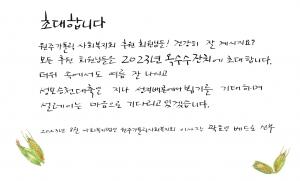 초대합니다
원주가톨릭 사회복지회 후원 회원님들! 건강히 잘 계시지요?
모든 후원 회원님들은 2023년 옥수수잔치에 초대합니다.
더위 속에서도 여름 잘 나시고
성모승천대축일 지나 성
뵙기를 기대하며
설레이는 마음으로 기다리고 있겠습니다.
2023년 8월 사회복지법인 원주가톨릭사회복지회 이사장 곽호인 베드로 신부